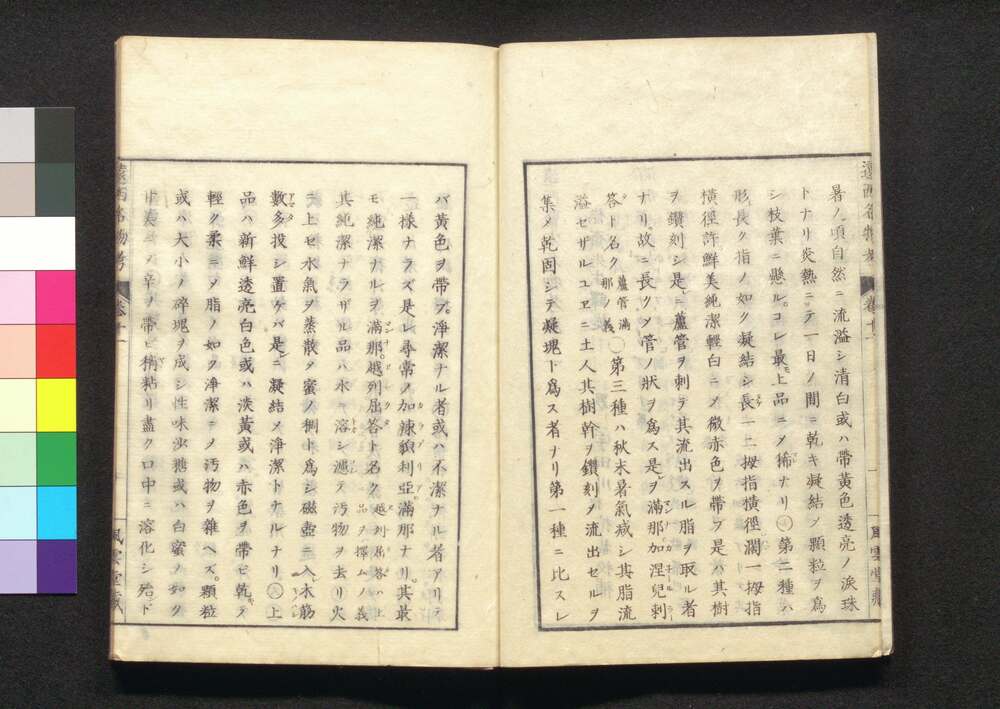 暑ノ頃自然ニ流溢シ清白或ハ帶黃色透亮ノ淚珠
トナリ炎熱ニテ一日ノ間ニ乾キ凝結メ顆粒ヲ爲
シ枝葉ニ懸ル。コレ最上品ニメ稀ナリ 第二種ハ
形長ク指ノ如ク凝結シ長一上拇指橫徑濶一拇指
橫徑許鮮美純潔輕白ニメ微赤色ヲ帶ブ是ハ其樹
ヲ鑽刻シ是ニ蘆管ヲ刺テ其流出スル脂ヲ取ル者
ナリ故ニ長クメ管ノ狀ヲ爲ス是ヲ滿那加涅兒剌
答ト名ク 蘆管滿那ノ義 〇第三種ハ秋末暑氣減シ其脂流
溢セザルユヱニ土人其樹幹ヲ鑽刻メ流出セルヲ
集メ乾固シテ凝塊ト爲ス者ナリ第一種ニ比スレ
遠西名物考 卷十一
風雲堂藏
バ黃色ヲ帶ブ。淨潔ナル者或ハ不潔ナル者アリテ
一樣ナラズ是レ尋常ノ加辣貌利亞滿那ナリ。其最
モ純潔ナルヲ滿那越列屈答ト名ク 越列屈答ハ上品ヲ擇ムノ義
其純潔ナラザル品ハ水ニ溶シ濾テ汚物ヲ去リ火
ニ上セ水氣ヲ蒸散メ蜜ノ稠ト爲シ磁壺ニ入木筋
數多投シ置ケバ是ニ凝結メ淨潔トナルナリ 上
品ハ新鮮透亮白色或ハ淡黃或ハ赤色ヲ帶ビ乾キ
輕ク柔ニメ脂ノ如ク淨潔ニメ汚物ヲ雜ヘズ。顆粒
或ハ大小ノ碎塊ヲ成シ性味沙糖或ハ白蜜ノ如ク
甘美ニメ 辛ノ帶ビ稍粘リ盡ク口中ニ溶化シ殆ト
風雲堂藏